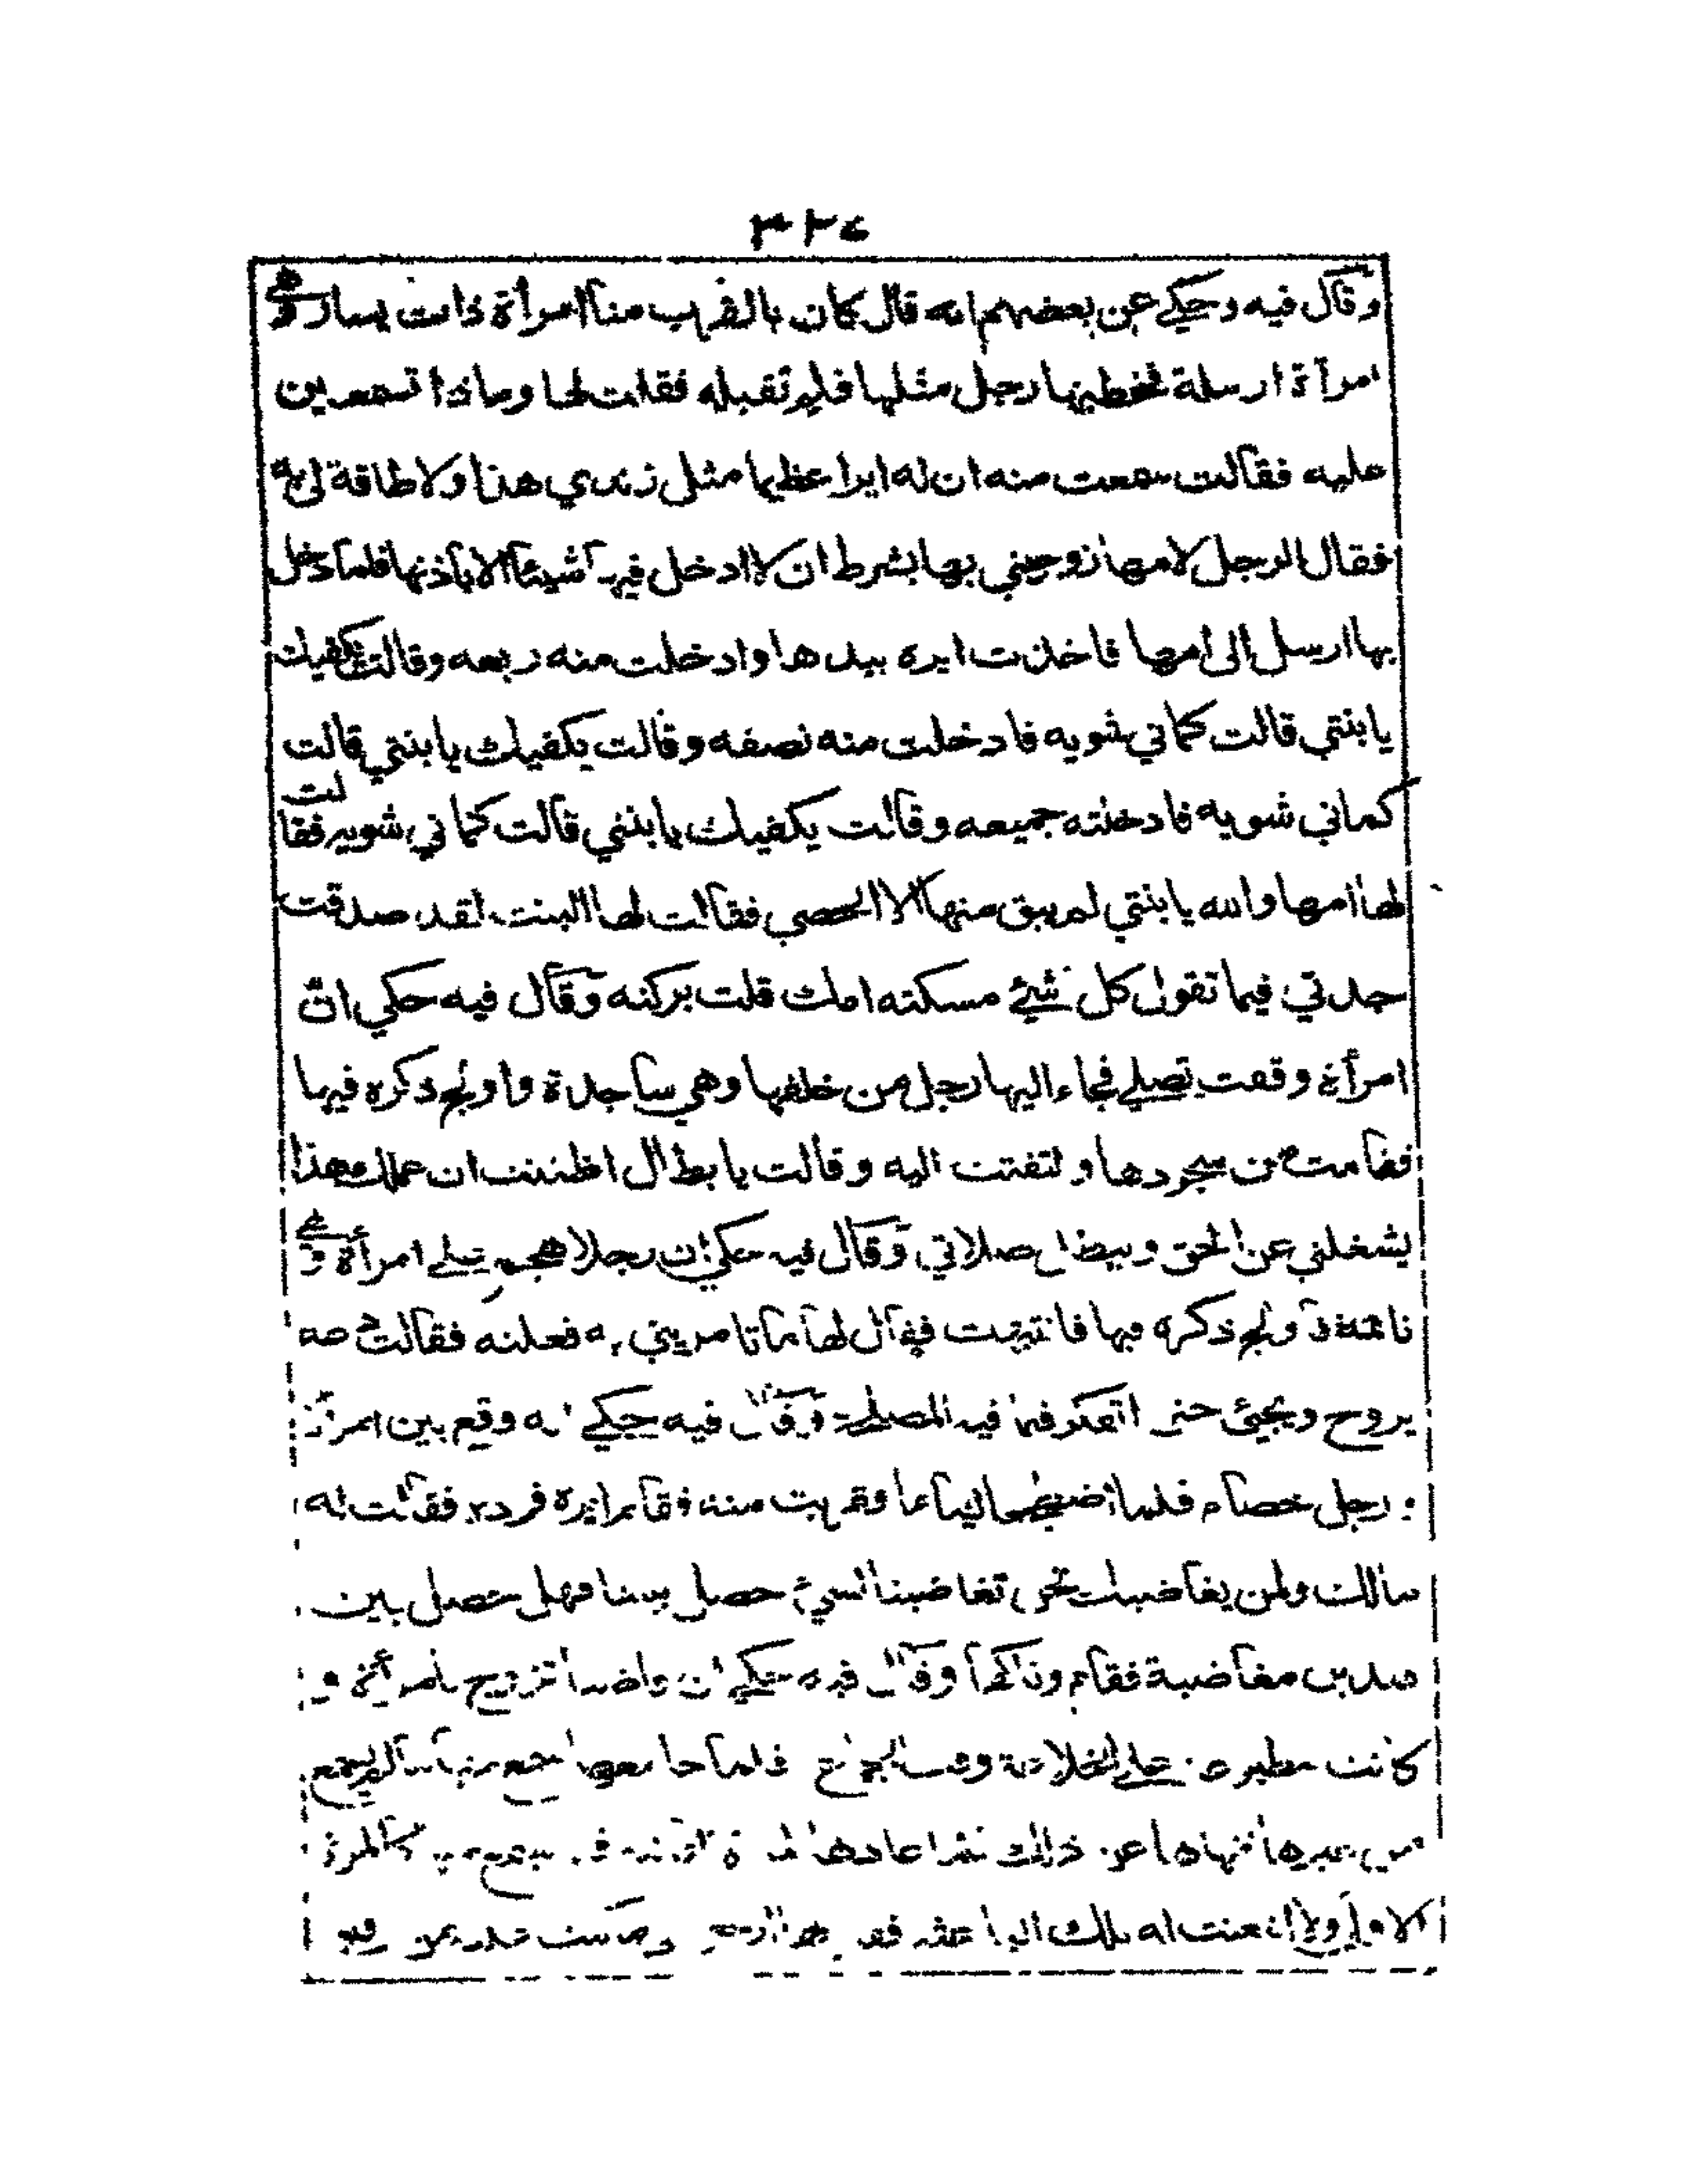 ٣٢٤
وقال فيه وحكي عن بعضهم انه قال كان بالقرب منا امرأة ذات يسار وهي
امرأة ارسلة فخطبها رجل مثلها فلم تقبله فقلت لها وماذا تسمعين
عليه فقالت سمعت منه ان له ايرا عظيما مثل زندي هذا ولا طاقة لي به
فقال الرجل لامها زوجيني بها بشرط ان لا ادخل فيها شيئا الا باذنها فلما دخل
بها ارسل الى امها فاخذت ايره بيدها وادخلت منه ربعه وقالت يكفيك
يا بنتي قالت كماني شويه فادخلت منه نصفه وقالت يكفيك يا بنتي قالت
كماني شويه فادخلته جميعه وقالت يكفيك يا بنتي قالت كماني شويه فقالت
لها امها والله يا بنتي لم يبق منها الا الخصي فقالت لها البنت لقد صدقت
جدتي فيما تقول كل شيئ مسكته امك قلت بركته وقال فيه حكي ان
امرأة وقفت تصلي فجاء اليها رجل من خلفها وهي ساجدة واولج ذكره فيها
فقامت من سجودها ولتفتت اليه وقالت يا بطال اظننت ان عملك هذا
يشغلني عن الحق ويبطل صلاتي وقال فيه حكي ان رجلا هجم على امرأة وهي
نائمة واولج ذكره فيها فانتبهت فقال لها ما تامريني به فعلته فقالت
يروح ويجيئ حتى اتفكر فيما فيه المصلحة وقال فيه حكي انه وقع بين امرأة
ورجل خصام فلما وقربت منه فقام ايره فرده فقالت له
مالك ولمن يغاضبك نحن تغاضبنا لشيء حصل بيننا فهل حصل بين
مغاضبة فقام وناكها وقال فيه حكي ان تزوج بامرأة و
كانت على الخلاعة الجماع فلما
غيرها فنهاها عن ذلك اعادها المرة
الاولى ولا